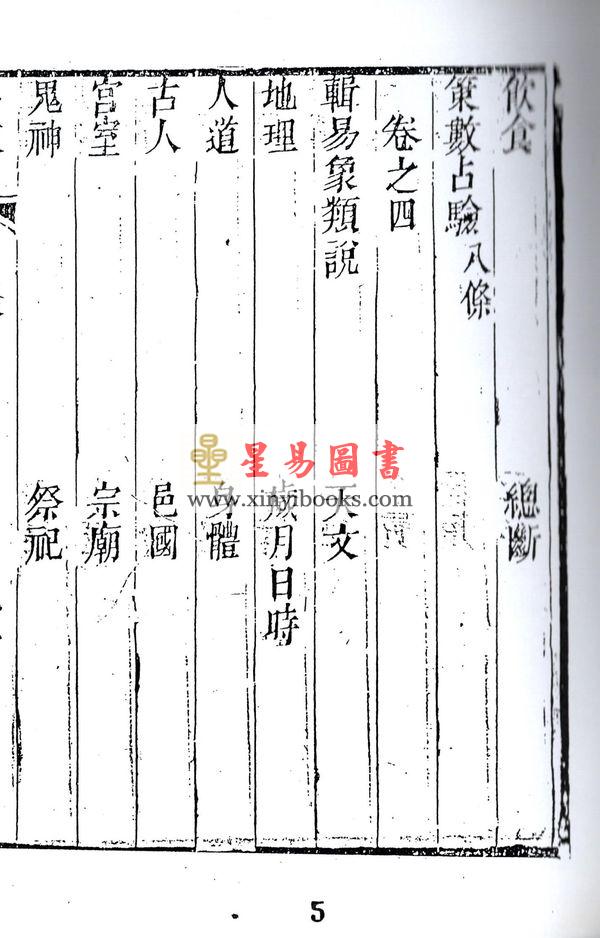 飲食　總斷
策數占驗八條
卷之四
輯易象類說　天文
地理　歲月日時
人道　身體
古人　邑國
宮室　宗廟
鬼神　祭祀
星易圖書
www.xinyibooks.com
5